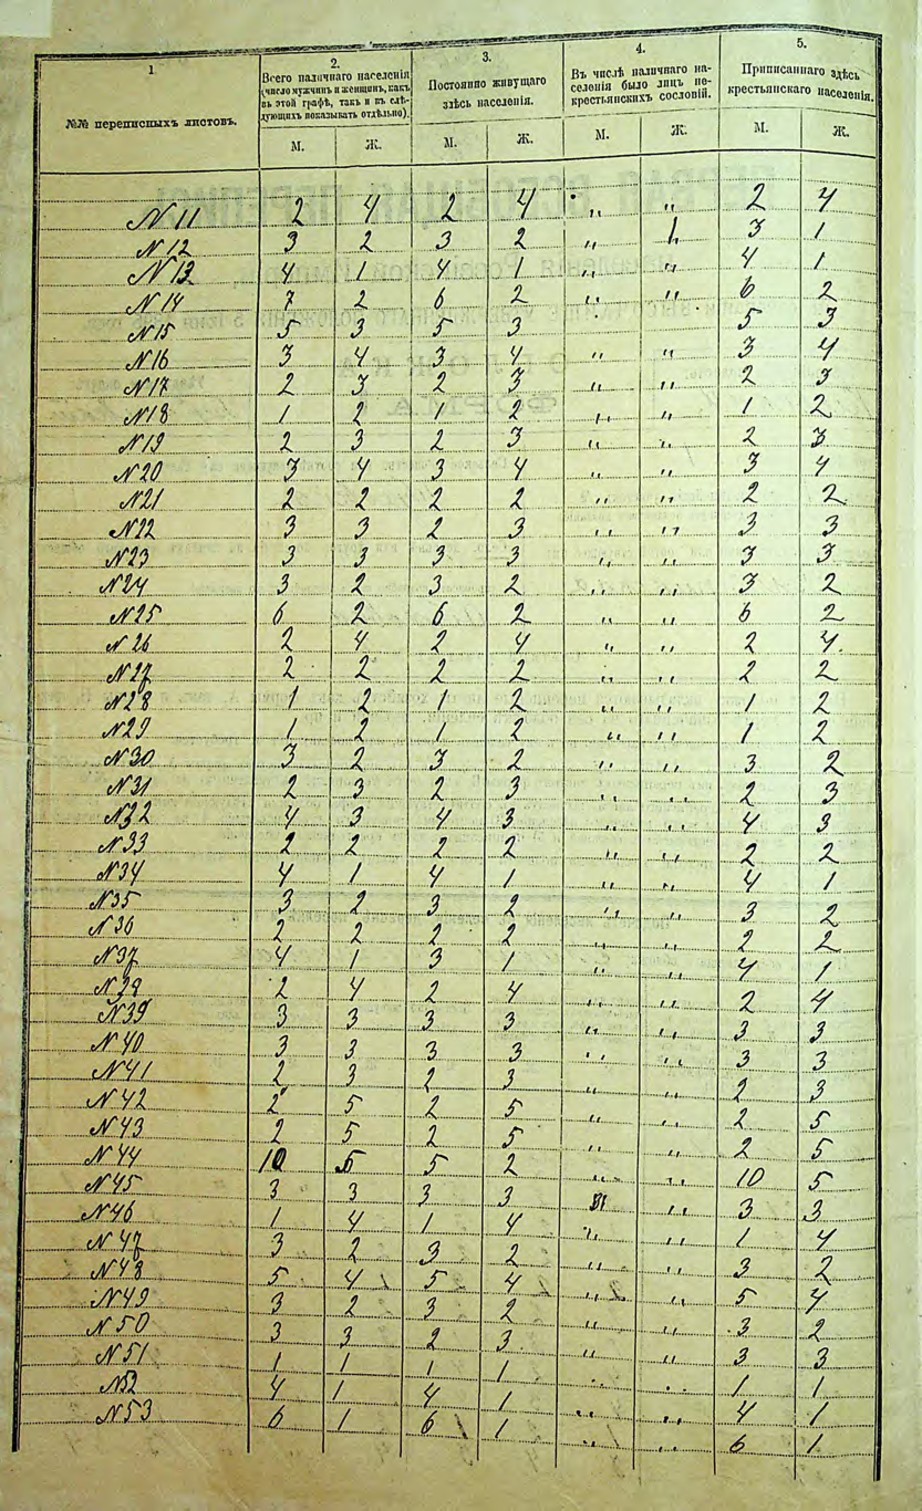 1 2. 3. 4. 5.
№№ переписныхъ листовъ. Всего наличнаго населенія (число мужчинъ и женщинъ, какъ въ этой графѣ, такъ и въ слѣдующихъ показывать отдѣльно). Постоянно живущаго здѣсь населенія. Въ числѣ наличнаго населенія было лицъ не-крестьянскихъ сословій. Приписаннаго здѣсь крестьянскаго населенія.
М. Ж. М. Ж. М. Ж. М. Ж.
N 11 2 4 2 4 " " 2 4
N 12 3 2 3 2 " 1 3 1
N 13 4 1 4 1 " " 4 1
N 14 7 2 6 2 " " 6 2
N 15 5 3 5 3 5 3
N 16 3 4 3 4 " " 3 4
N 17 2 3 2 3 " " 2 3
N 18 1 2 1 2 " " 1 2
N 19 2 3 2 3 " " 2 3
N 20 3 4 3 4 " " 3 4
N 21 2 2 2 2 " " 2 2
N 22 3 3 2 3 " " 3 3
N 23 3 3 3 3 " " 3 3
N 24 3 2 3 2 " " 3 2
N 25 6 2 6 2 " " 6 2
N 26 2 4 2 4 " " 2 4
N 27 2 2 2 2 " " 2 2
N 28 1 2 1 2 " " 1 2
N 29 1 2 1 2 " " 1 2
N 30 3 2 3 2 " " 3 2
N 31 2 3 2 3 " " 2 3
N 32 4 3 4 3 " " 4 3
N 33 2 2 2 2 " " 2 2
N 34 4 1 4 1 " " 4 1
N 35 3 2 3 2 " " 3 2
N 36 2 2 2 2 " " 2 2
N 37 4 1 3 1 " " 4 1
N 38 2 4 2 4 " " 2 4
N 39 3 3 3 3 " " 3 3
N 40 3 3 3 3 " " 3 3
N 41 2 3 2 3 " " 2 3
N 42 2 5 2 5 " " 2 5
N 43 2 5 2 5 " " 2 5
N 44 10 5 5 2 " " 10 5
N 45 3 3 3 3 " " 3 3
N 46 1 4 1 4 " " 1 4
N 47 3 2 3 2 " " 3 2
N 48 5 4 5 4 " " 5 4
N 49 3 2 3 2 " " 3 2
N 50 3 3 2 3 " " 3 3
N 51 1 1 1 1 " " 1 1
N 52 4 1 4 1 " " 4 1
N 53 6 1 6 1 " " 6 1